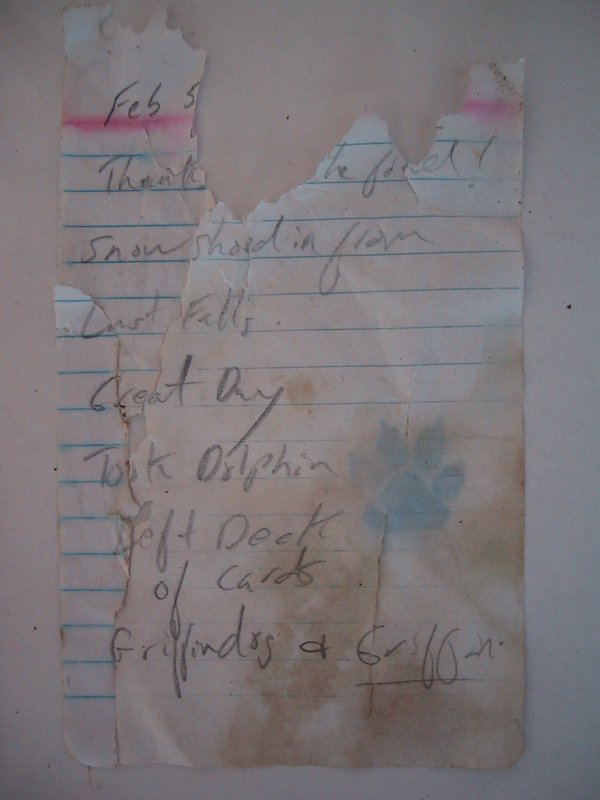 Feb 5
Thank the food!
Snow shoed in from
Lost Falls.
Great Day
Took Dolphin
Left Deck
of cards
Griffindog & Griffin